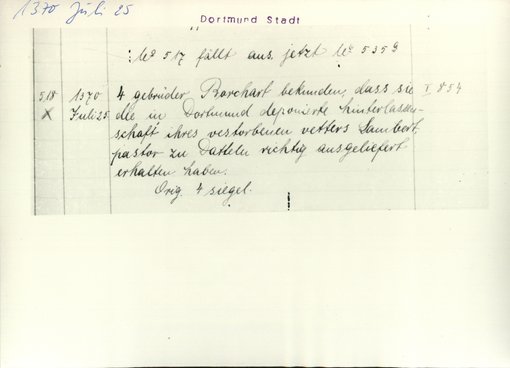 1370 Juli 25
Dortmund Stadt
: No 517 fällt aus. jetzt No 535g
518 1370 4 gebrüder Borchart bekunden, dass sie I 854
X Juli 25 die in Dortmund deponierte hinterlassen-
schaft ihres vestorbenen vetters Lambert,
pastor zu Datteln richtig ausgeliefert
erhalten haben.
Orig. 4 siegel.